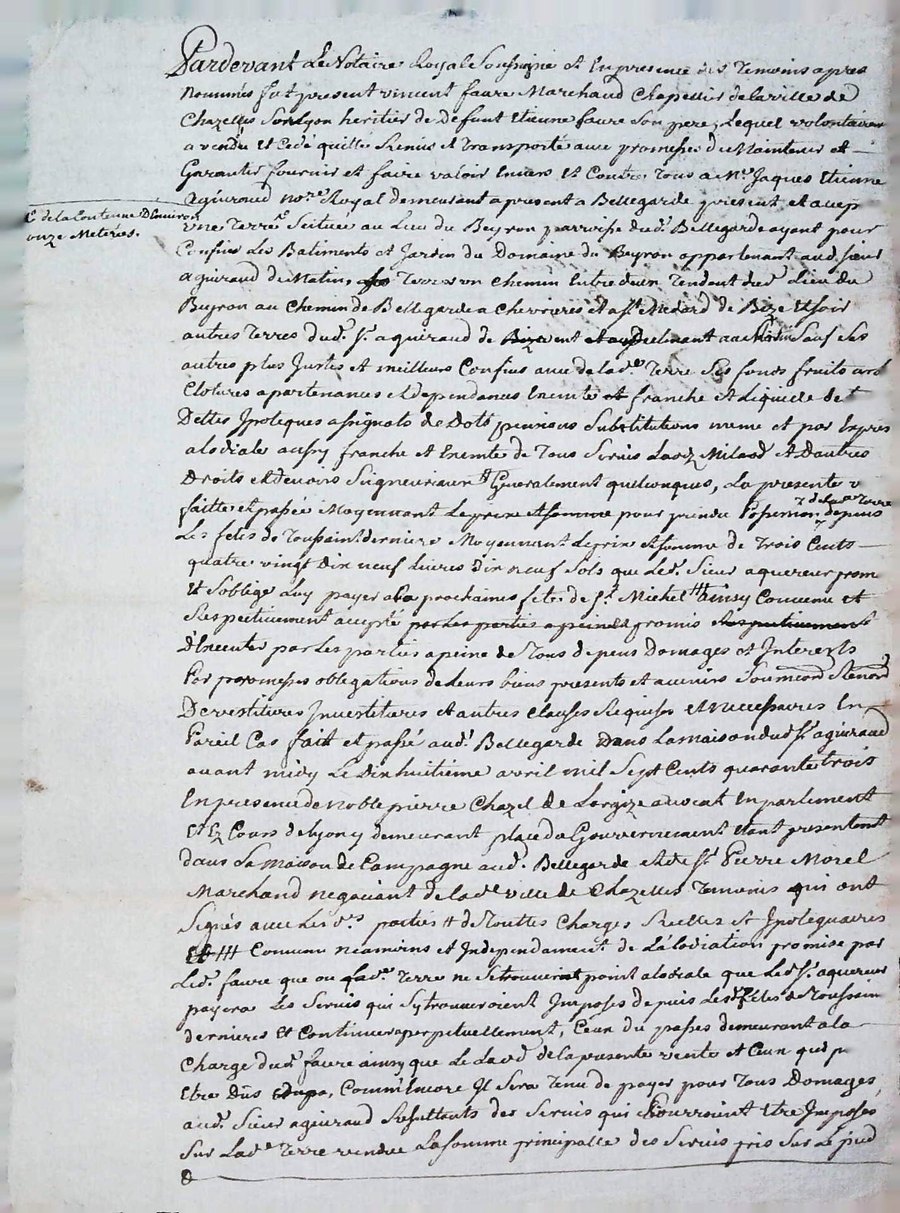 Pardevant Le Notaire Royal Soussigné et En presence des Temoins apres
nommés fut present vincent faure Marchand Chapellier de la ville de
Chazelles Sur Lyon heritier de Defunt Etienne faure Son pere, Lequel volontairem
a vendu Et Cedé quitté Remis et Transporté avec promesses de Maintenir et
Garantir fournir et faire valoir Envers Et Contre Tous a Me Jaques Etienne
Aguiraud nore Royal demeurant a present a Bellegarde present et accep
C de la Contenue D'Environ
onze Meterés.
une Terre Scituée au Lieu du Beyron parroisse dud. Bellegarde ayant pour
Confins Les Batiments et Jardin du Domaine du Beyron appartenant aud. sieur
aguiraud de Matin, Terre un Chemin Entre deux Tendant dud. Lieu du
Beyron au Chemin de Bellegarde a Chevrieres et a St. Medard de Bize Et soir
autres Terres dud. Sr. aguiraud de et Sauf Ses
autres plus Justes et meilleurs Confins avec de lad.e Terre Ses fonds fruits
Clotures apartenances et dependances Exemte et franche et Liquide de
Dettes Ipoteques assignats de Dots pensions Substitutions meme et par Expres
alodiale aussy franche et Exemte de Tous Servis Laodz Milaod et Dautres
Droits et devoirs Seigneuriaux # Generalement quelconques, La presente v
faitte et passée Moyennant Le prix et somme pour prendre Possession de lad.e Terre depuis
Les fetes de Toussaint derniere Moyennant Le prix et somme de Trois Cents
quatre vingt Dix neuf Livres dix neuf Sols que Led. Sieur aquereur prom
Et Soblige Luy payer a la prochaines fetes de St. Michel ## Ainsy Convenu et
Respectivement accepté par Les parties a peine promis Respectivement
d'Executer par Les parties a peine de Tous depens Domages et Interests
Par promesses obligations de Leurs biens presents et avenirs Soumissions Renon
Devestitures Investitures et autres Clauses Requises et Necessaires En
Pareil Cas fait et passé aud. Bellegarde Dans La maison dud. Sr. aguiraud
avant midy Le Dixhuitieme avril mil Sept Cents quarante trois
En presence de noble pierre Chazel de avocat En parlement
Et Ez Cours de Lyon y demeurant place du Gouvernement Etant presentemt
dans Sa Maison de Campagne aud. Bellegarde et de Sr. Pierre Morel
Marchand negotiant de lad.e ville de Chazelles Temoins qui ont
Signés avec Les d.s parties # de Touttes Charges Reelles et Ipotequaires
## Convenu neamoins et Independament de L'alodiation promise par
Led. faure que ou Lad.e Terre ne Se trouveroit point alodiale que Led. Sr. aquereur
payera Les Servis qui Sy trouveroient Imposés depuis Lesd. fetes de Toussain
dernieres Et Continuera perpetuellement, Ceux du passés demeurant a la
Charge dud. faure ainsy que Le Laod de la presente vente et Ceux qui p
Etre Dus Comm'Encore Il Sera Tenu de payer pour Tous Domages
aud. Sieur aguiraud Resultants des Servis qui Pourroient Etre Imposes
Sur Lad.e Terre vendue La Somme principalle des Servis pris Sur Le pied
D